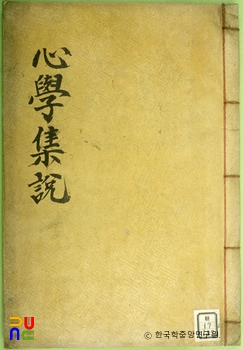 心學集說
© 한국학중앙연구원